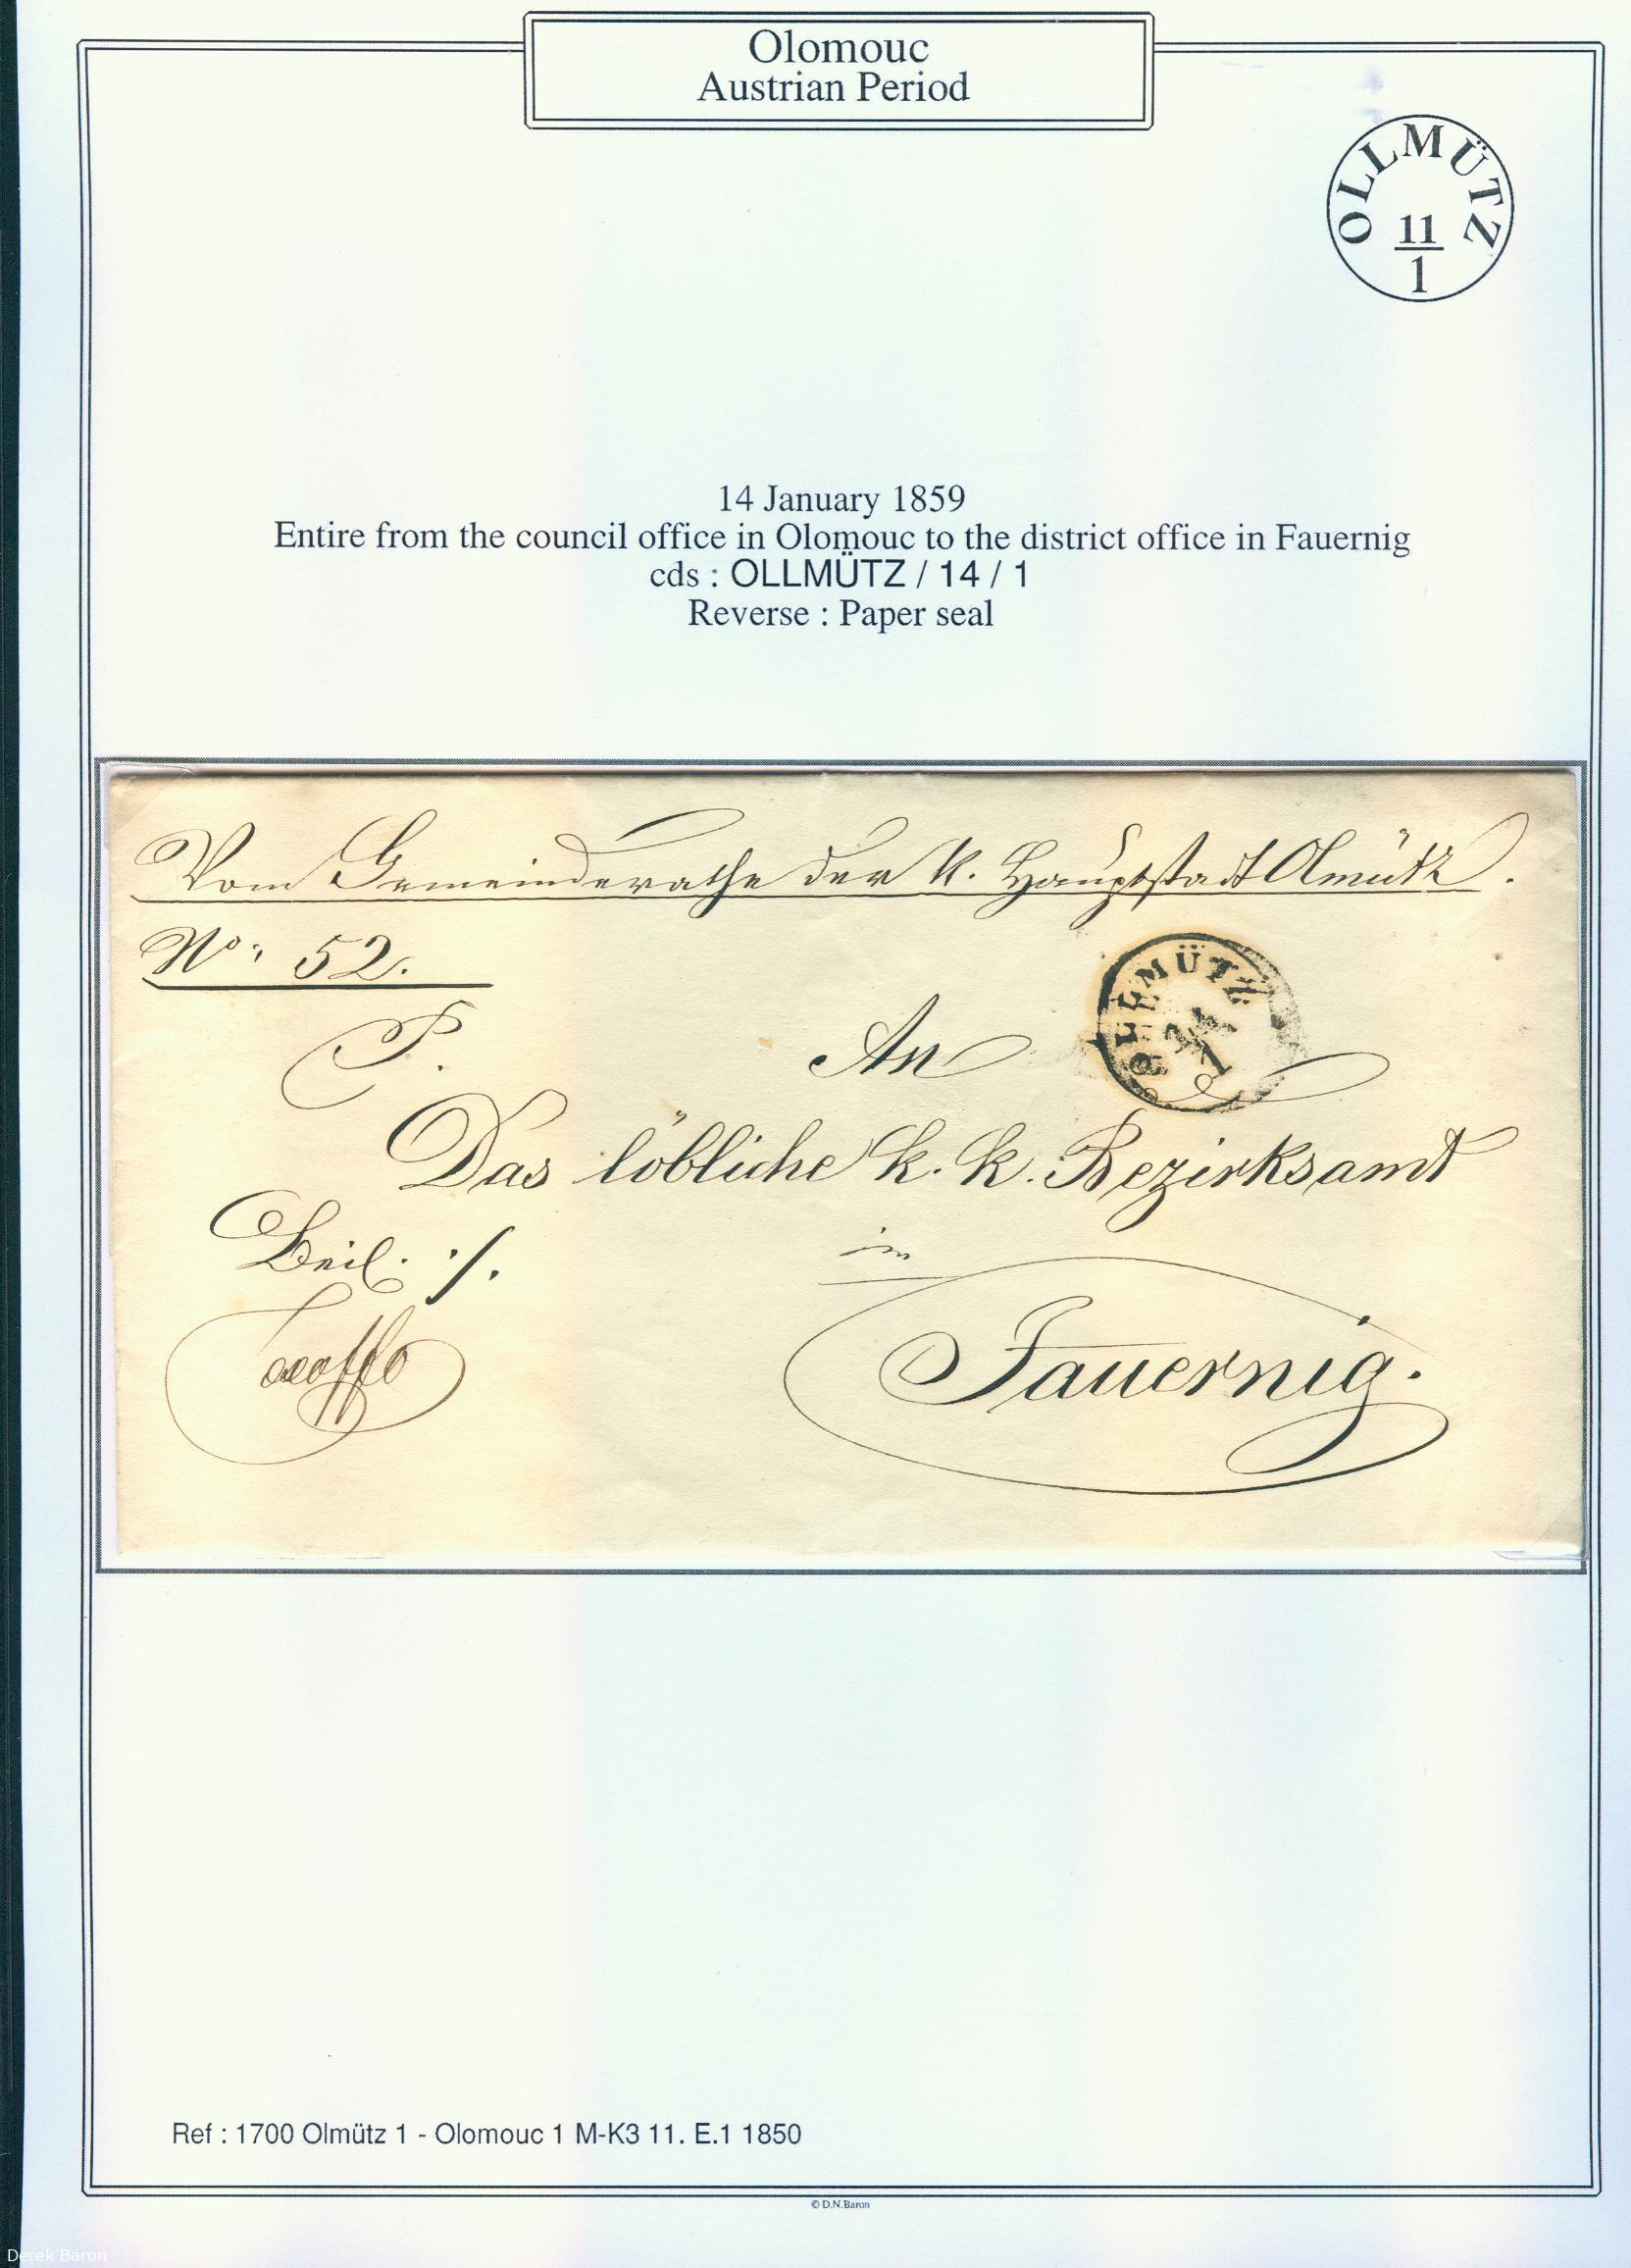 Olomouc
Austrian Period
OLLMÜTZ
11
1
14 January 1859
Entire from the council office in Olomouc to the district office in Fauernig
cds : OLLMÜTZ / 14 / 1
Reverse : Paper seal
Vom Gemeinderathe der k. Hauptstadt Olmütz.
No: 52.
OLLMÜTZ
1
P.
An
Das löbliche k. k. Bezirksamt
Beil. ./.
in
Fauernig.
Ref : 1700 Olmütz 1 - Olomouc 1 M-K3 11. E.1 1850
© D.N.Baron
Derek Baron